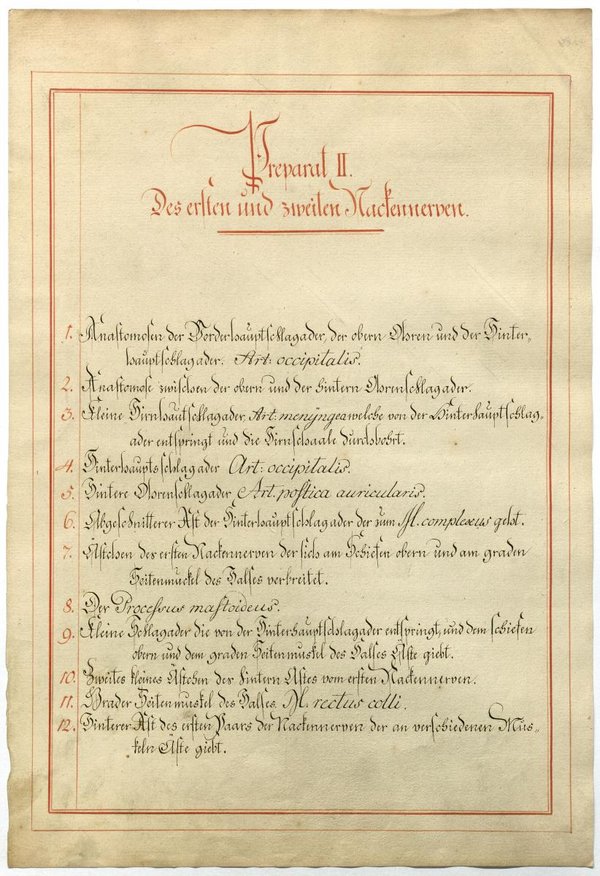 Preparat II.
Des ersten und zweiten Nackennerven.
1. Anastomosen der Vorderhauptschlagader, der obern Ohren und der Hinter-
hauptschlagader. Art: occipitalis.
2. Anastomose zwischen der obern und der hintern Ohrenschlagader.
3. Kleine Hirnhautschlagader Art. menyngea welche von der Hinterhauptschlag
ader entspringt und die Hirnschaale durchbohrt.
4. Hinterhauptsschlagader Art: occipitalis.
5. Hintere Ohrenschlagader Art. postica auricularis.
6. Abgeschnitterer Ast der Hinterhauptschlagader der zum M. complexus gehet.
7. Ästchen des ersten Nackennerven der sich am Schiefen obern und am graden
Seitenmuckel des Halses verbreitet.
8. Der Processus mastoideus.
9. Kleine Schlagader die von der Hinterhauptschlagader entspringt, und dem schiefen
obern und dem graden Seitenmuskel des Halses Äste giebt.
10. Zweites kleines Ästchen der hintern Astes vom ersten Nackennerven.
11. Grader Seitenmuskel des Halses. M. rectus colli.
12. Hinterer Ast des ersten Paars der Nackennerven der an verschiedenen Mus-
keln Äste giebt.